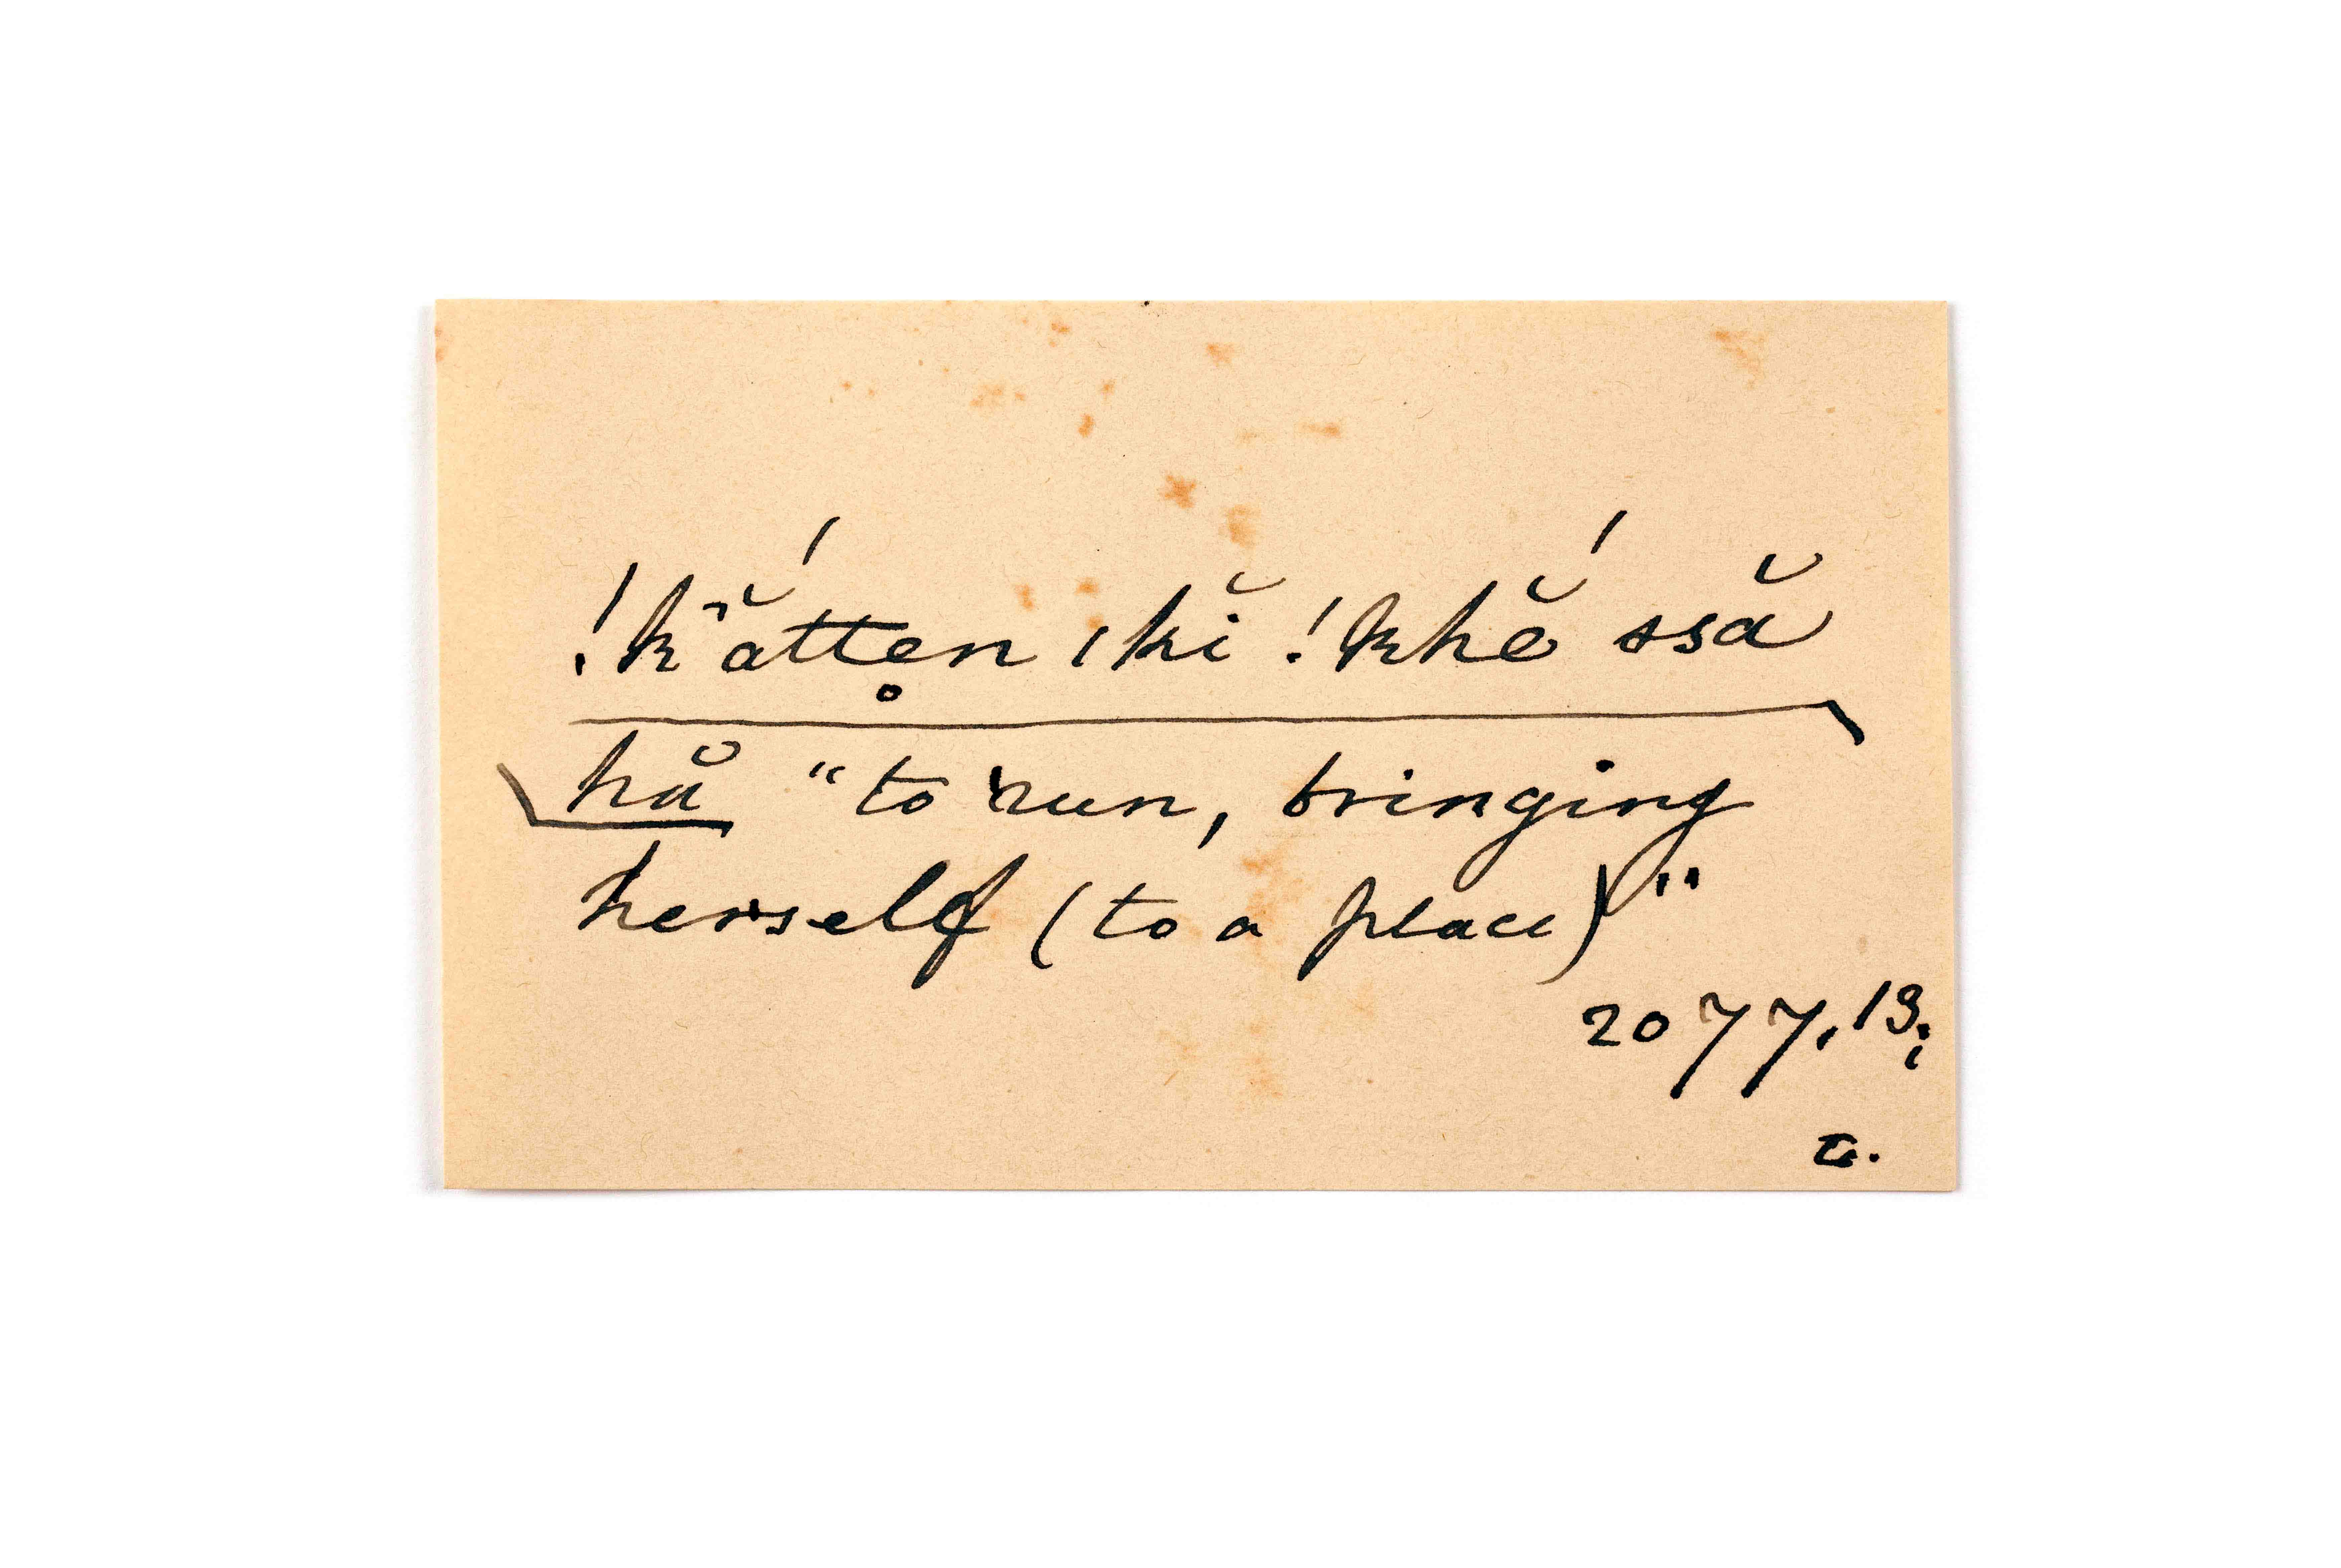 !k˜ắttẹn ıkĭ !khĕ́ ssă
hă “to run, bringing
herself (to a place)”
2077,13;